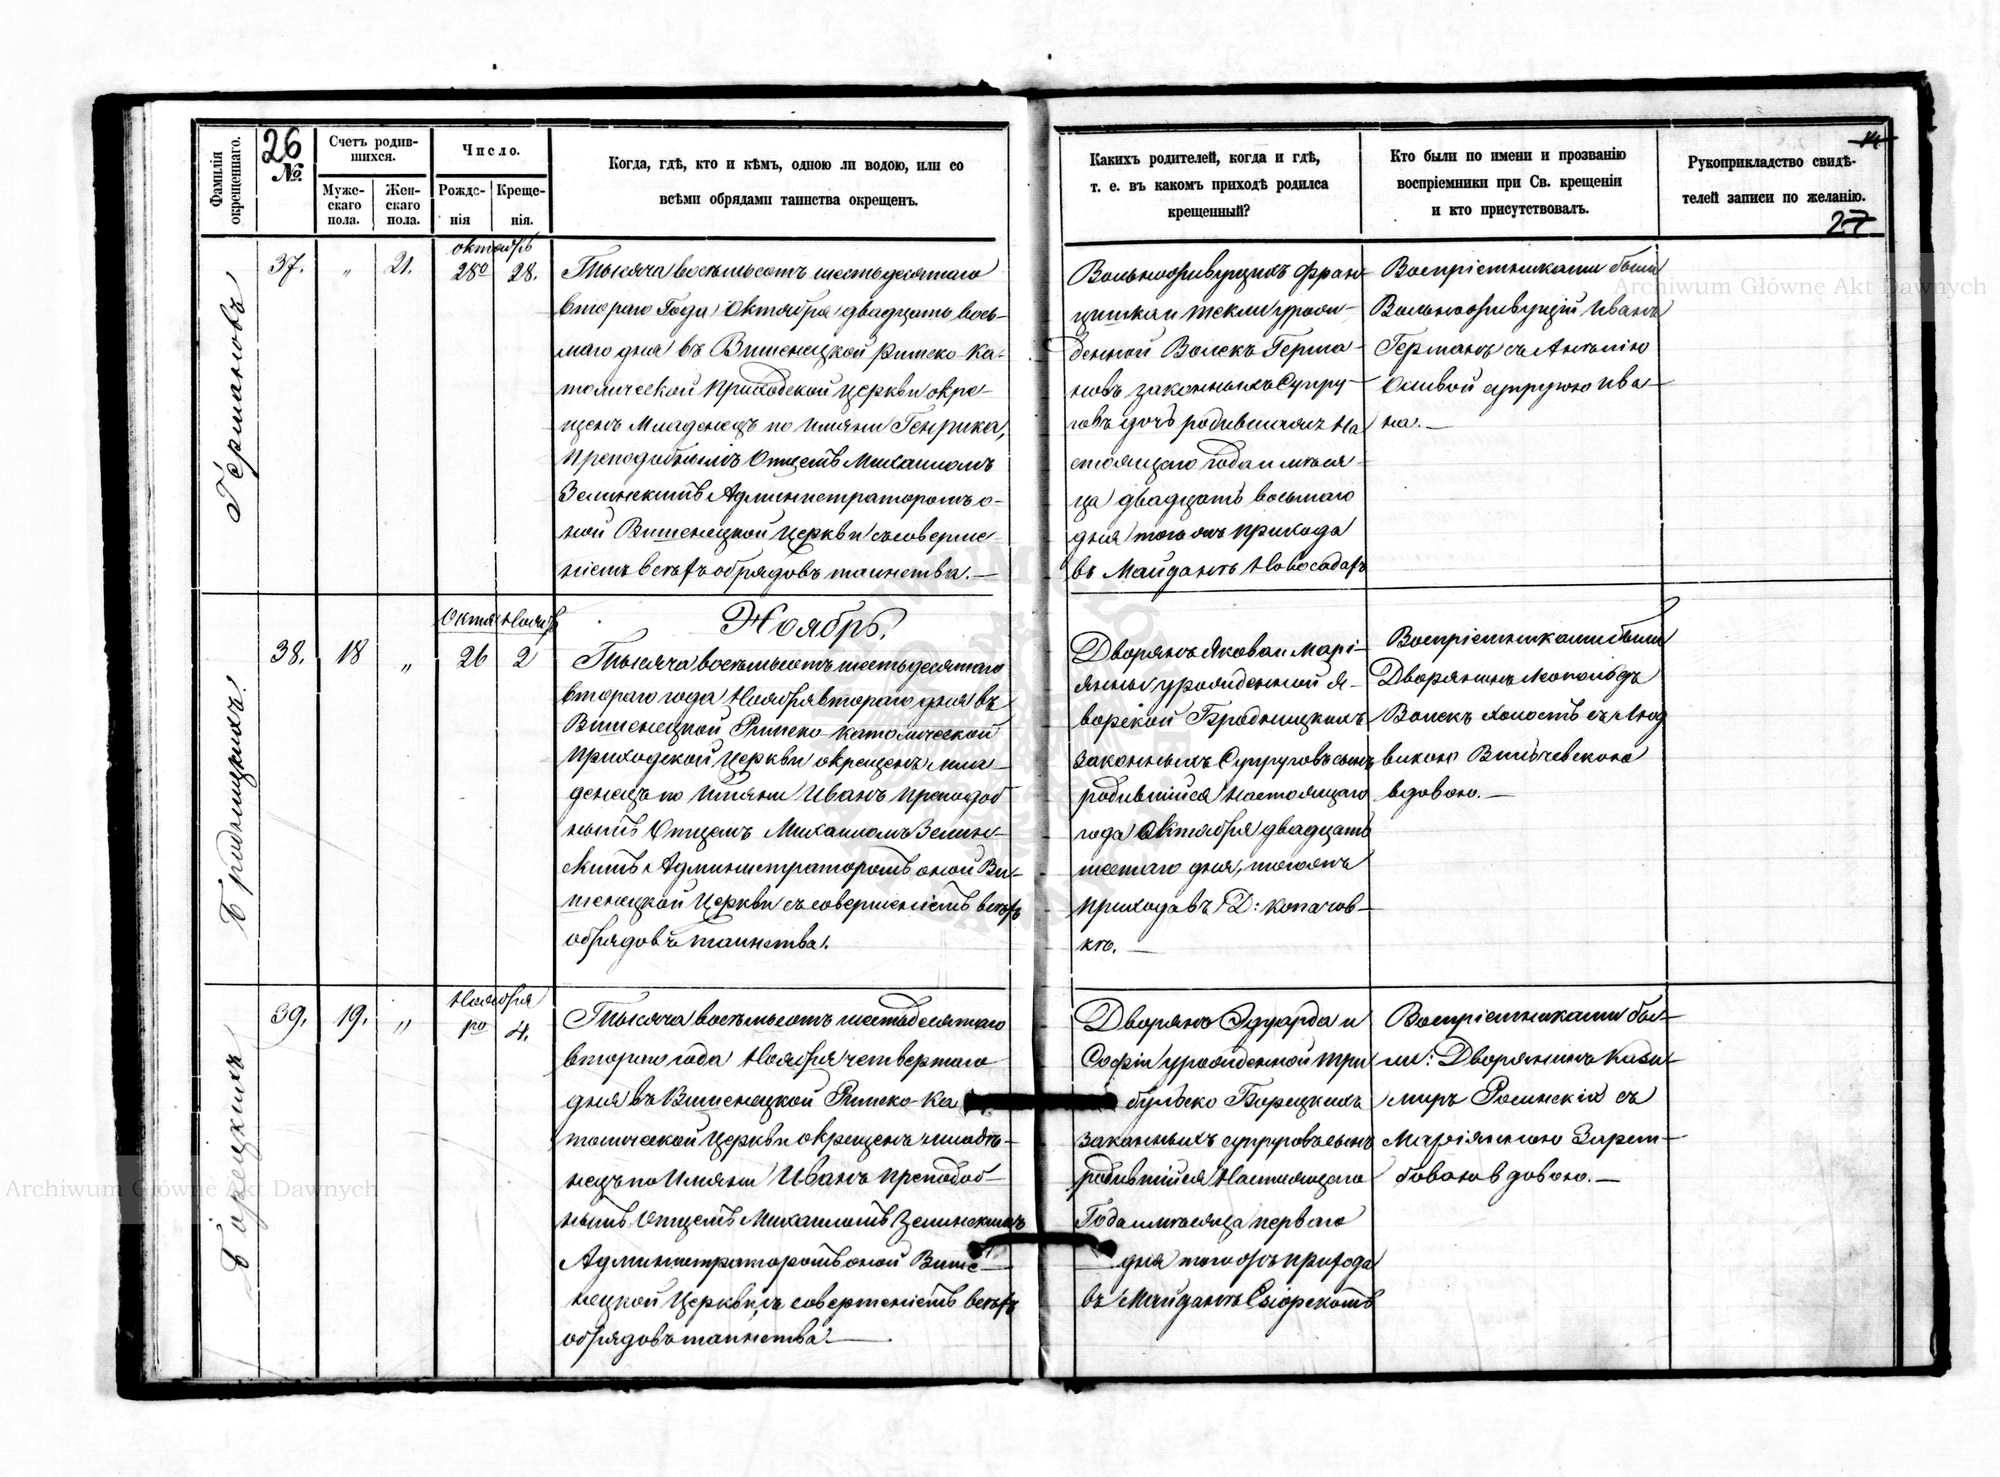 Фамилія окрещеннаго.
26
№.
Счетъ родив-
шихся.
Муже-
скаго
пола.
Жен-
скаго
пола.
Число.
Рожде-
нія
Креще-
нія.
Когда, гдѣ, кто и кѣмъ, одною ли водою, или со
всѣми обрядами таинства окрещенъ.
Германовъ
37.
„
21.
октябрь
28го
28.
Тысяча восемьсотъ шестьдесятаго
втораго Года Октября двадцать вось-
маго дня въ Вишенецкой римско-ка-
толической приходской церкви окре-
щенъ Младенецъ по имяни Генрика,
преподобнымъ Отцемъ Михаиломъ
Зелинскимъ Администраторомъ о-
ной Вишенецкой Церкви съ соверше-
ніемъ всѣхъ обрядовъ таинства.—
Бродницкихъ.
38.
18
„
Октя
Нояб
26
2
Ноябрь.
Тысяча восемьсотъ шестьдесятаго
втораго года Ноября втораго дня въ
Вишенецкой Римско-католической
приходской церкви окрещенъ мла-
денецъ по Имяни Иванъ преподоб
нымъ Отцемъ Михаиломъ Зелин-
скимъ Администраторомъ оной Ви-
шенецкой Церкви съ совершеніемъ всѣхъ
обрядовъ таинства.
Борецкихъ
39.
19.
„
Ноября
4.
Тысяча восемьсотъ шестьдесятаго
втораго года Ноября четвертаго
дня въ Вишенецкой Римско-Ка
толической Церкви окрещенъ младѣ-
нецъ по Имяни Иванъ преподоб-
нымъ Отцемъ Михаиломъ Зелинскимъ
Администраторомъ оной Више-
нецкой Церкви, съ совершеніемъ всѣхъ
обрядовъ таинства.—
Какихъ родителей, когда и гдѣ,
т. е. въ какомъ приходѣ родился
крещенный?
Кто были по имени и прозванію
воспріемники при Св. крещеніи
и кто присутствовалъ.
Рукоприкладство свидѣ-
телей записи по желанію.
27
Вольноживущихъ Фран-
цишка и Текли урож-
денной Волскъ Герма-
новъ законныхъ Супру-
говъ дочь родившаяся На
стоящаго года и мѣся-
ца двадцать восьмаго
дня того жъ прихода
въ Майданѣ Новосадахъ
Воспріемниками были
Вольноживущій Иванъ
Германъ съ Антоніою
супругою Ива-
на.—
Дворянъ Якова и Марі-
янны урожденной Я-
ворской Бродницкихъ
законныхъ Супруговъ сынъ
родившійся Настоящаго
года Октября двадцать
шестаго дня, того жъ
прихода въ Д: Копачов-
кѣ.—
Воспріемниками были
Дворянинъ Леопольдъ
Волскъ холостъ съ Люд
викою Вильчевскою
вдовою.—
Дворянъ Эдуарда и
Софіи урожденной Три
бульско Борецкихъ
законныхъ супруговъ сынъ
родившійся Настоящаго
Года и мѣсяца перваго
дня того жъ прихода
въ Майданѣ Сѣорскомъ
Воспріемниками бы-
ли: Дворянинъ Кази-
миръ Росинскій съ
Маріянною Зарем-
бовою вдовою.—
Archiwum Główne Akt Dawnych
Archiwum Główne Akt Dawnych